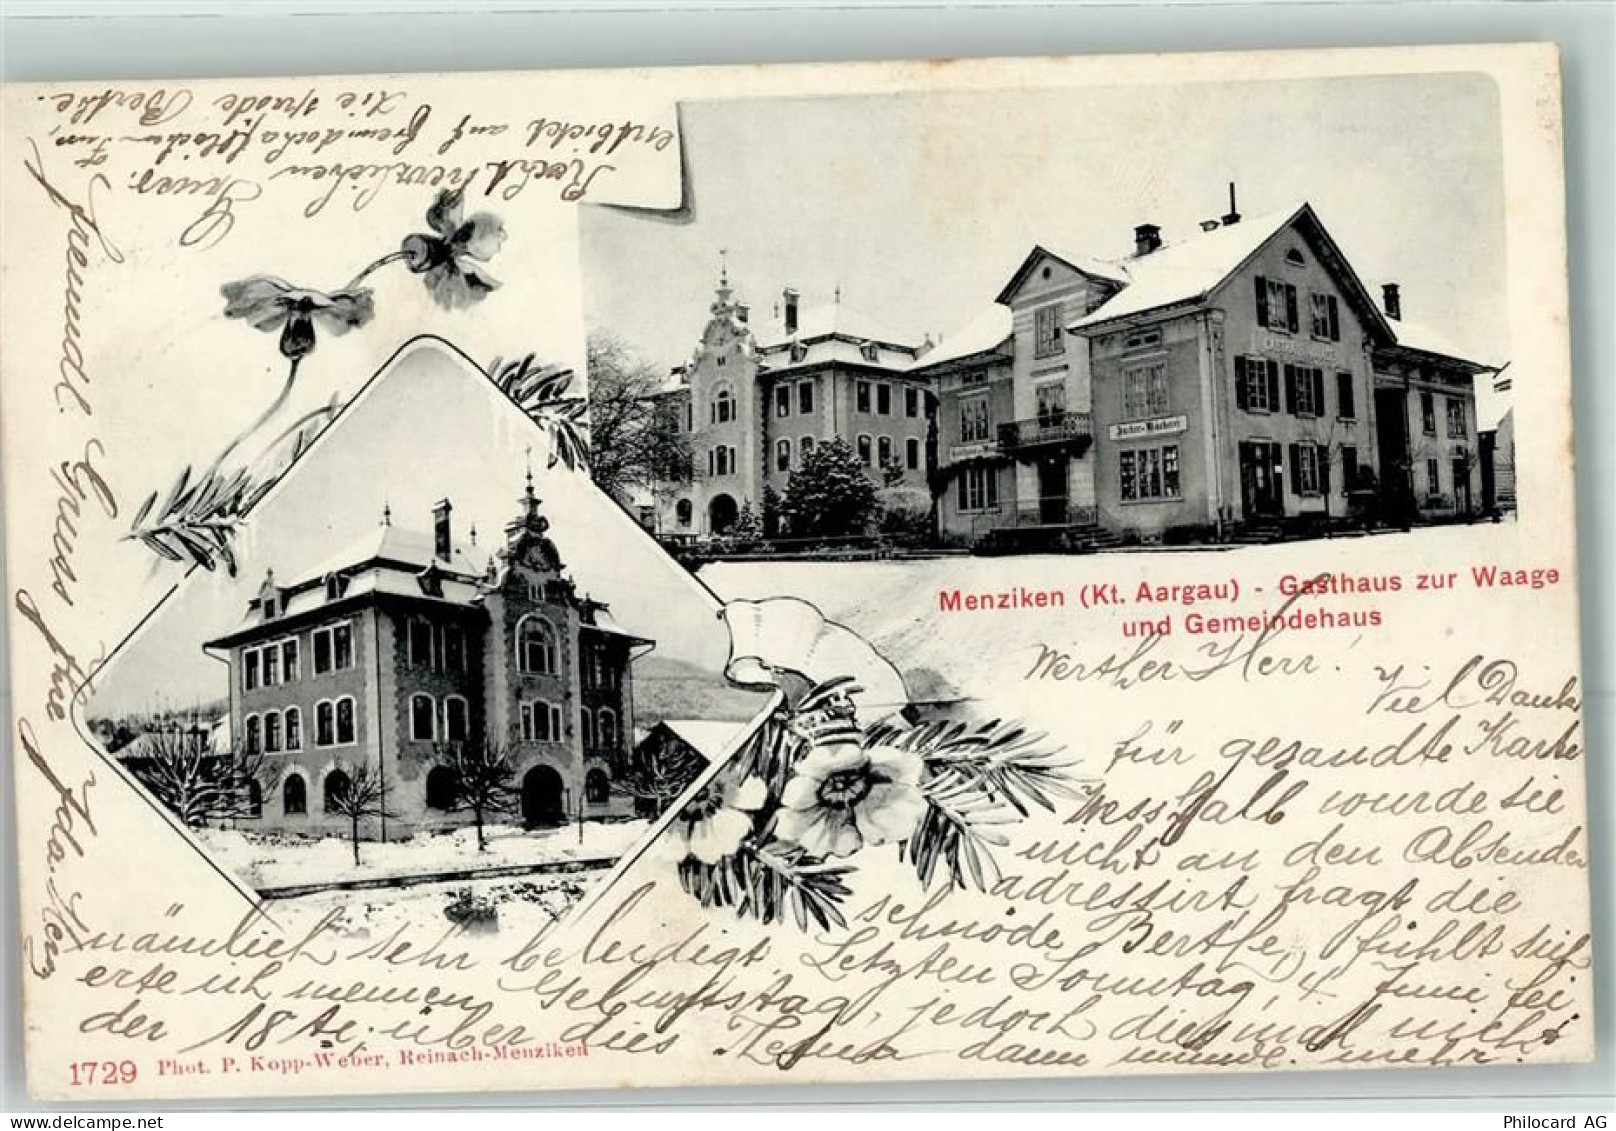 Menziken (Kt. Aargau) - Gasthaus zur Waage
und Gemeindehaus
Zucker-Bäckerei
Werther Herr!
Viel Dank
für gesandte Karte
Wesshalb wurde sie
nicht an den Absender
adressirt, fragt die
schnöde Berthe, fühlt sich
nämlich sehr beleidigt. Letzten Sonntag, 4 Juni fei
erte ich meinen Geburtstag, jedoch diesmal nicht
der 18te; über dies Thema dann mündl. mehr.
Recht herzlichen Gruss,
entbietet auf freundschaftlichen Fuss,
die spröde Berthe.
freundl. Gruss frl Ida Merz
1729 Phot. P. Kopp-Weber, Reinach-Menziken
Philocard AG